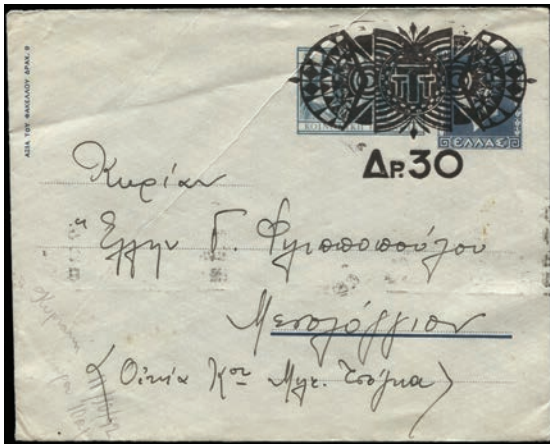 ΑΞΙΑ ΤΟΥ ΦΑΚΕΛΛΟΥ ΔΡΑΧ. 9
ΤΤΤ
ΕΛΛΑΣ
ΔΡ. 30
Κυρίαν
Έλλην Γ. Φιλιπποπούλου
Μεσολόγγιον
(Οικία Κου Μιλτ. Τζόγκα)